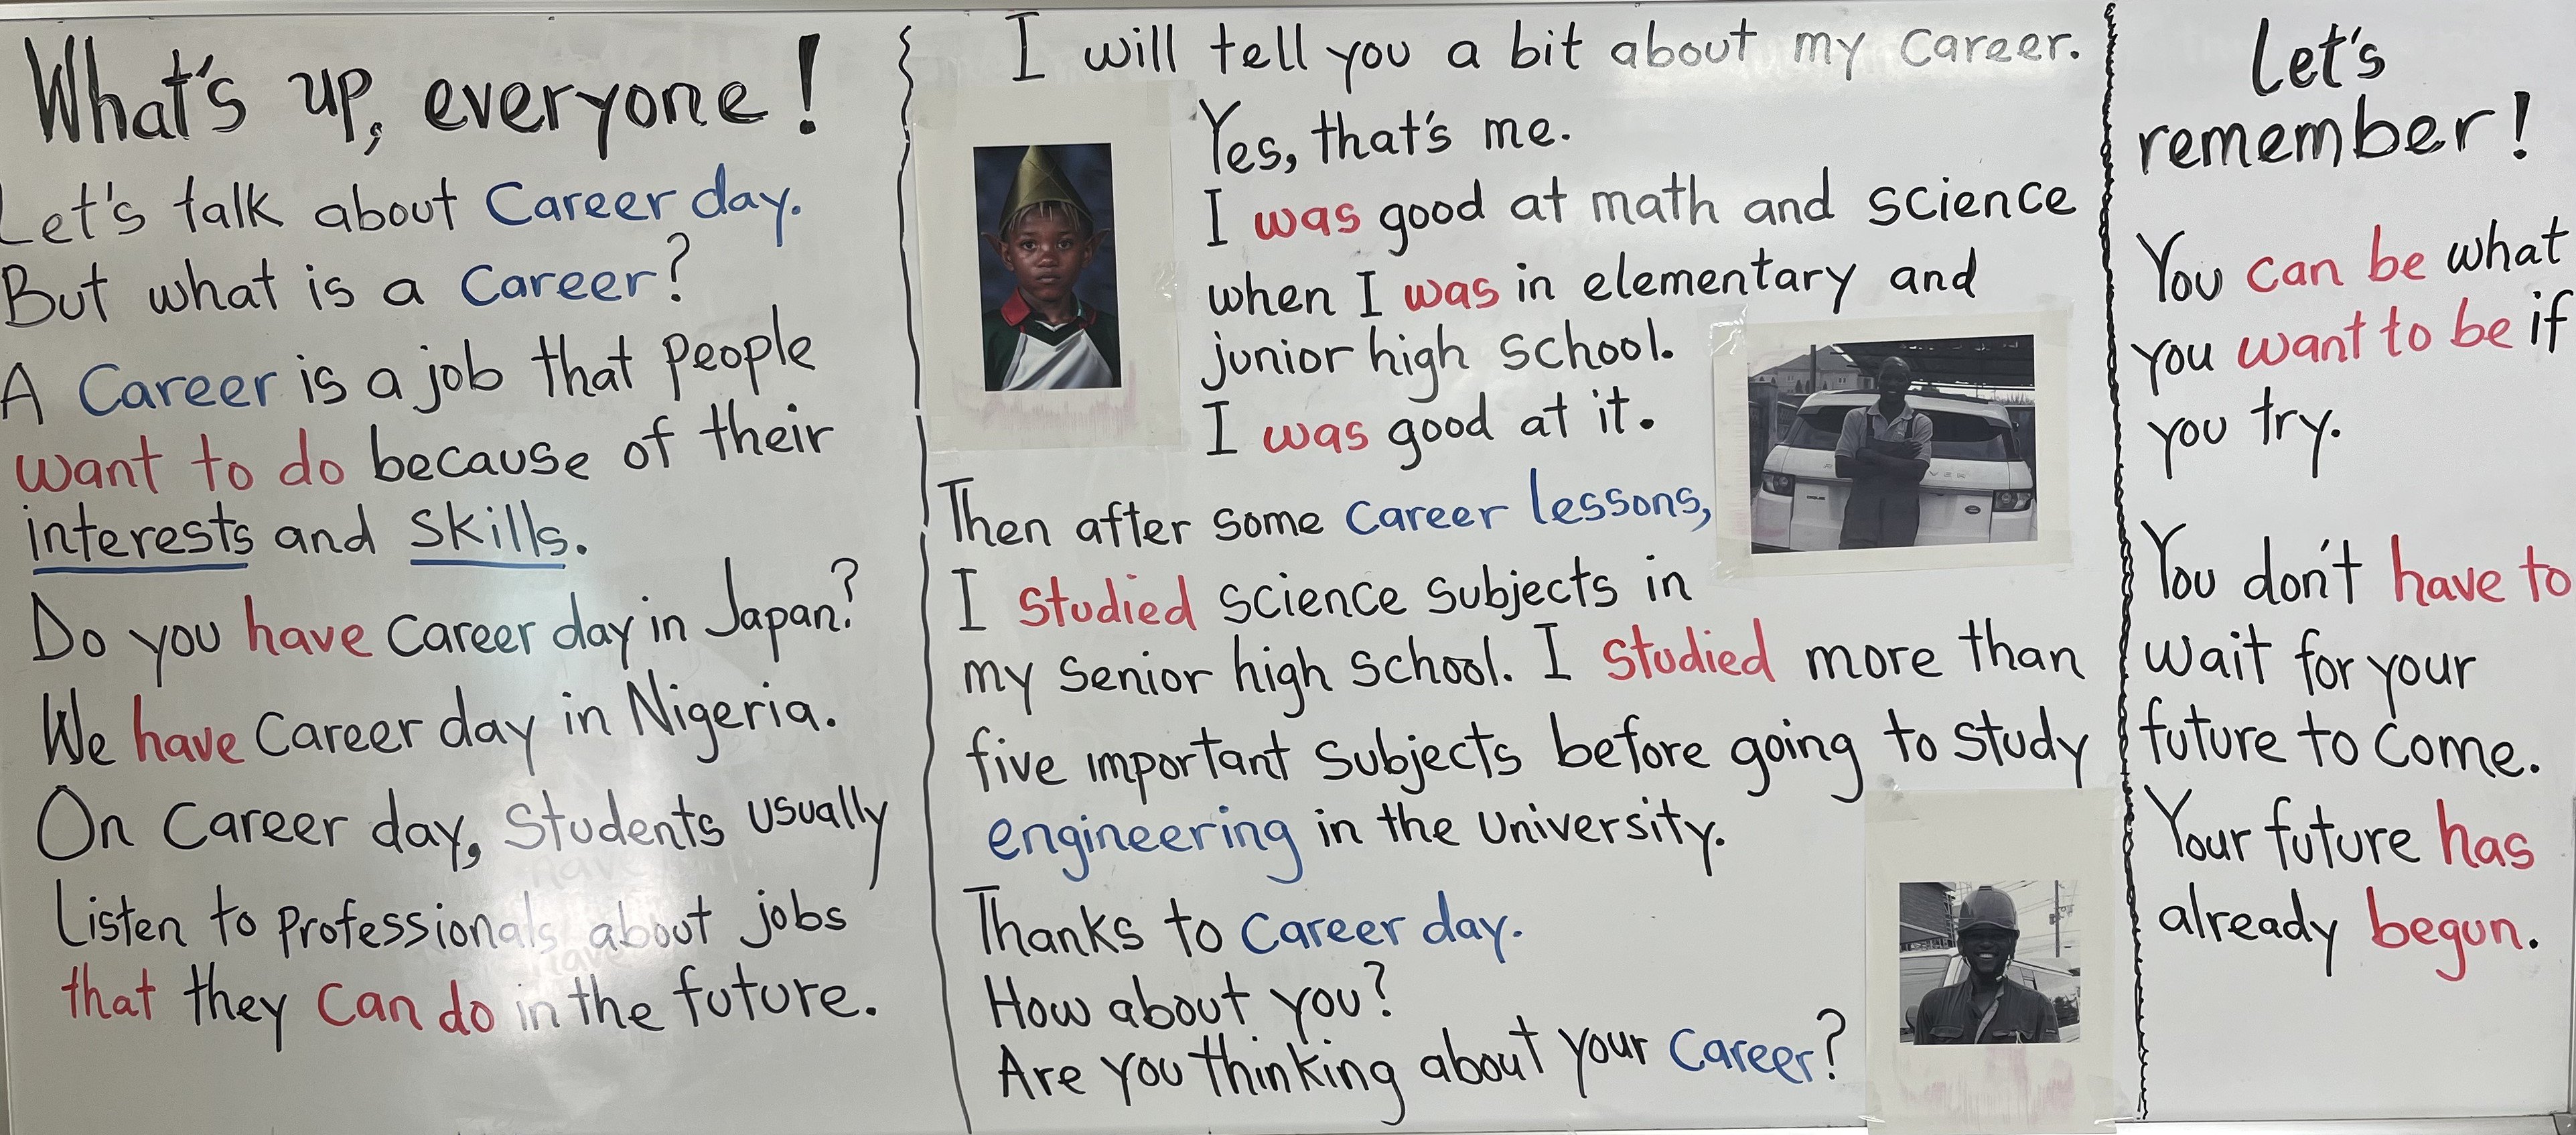 What's up, everyone!
Let's talk about Career day.
But what is a Career?
A Career is a job that people
want to do because of their
interests and skills.
Do you have Career day in Japan?
We have Career day in Nigeria.
On Career day, students usually
Listen to professionals about jobs
that they can do in the future.
I will tell you a bit about my career.
Yes, that's me.
I was good at math and science
when I was in elementary and
junior high school.
I was good at it.
Then after some Career lessons,
I studied science subjects in
my senior high school. I studied more than
five important subjects before going to study
engineering in the university.
Thanks to Career day.
How about you?
Are you thinking about your Career?
Let's
remember!
You can be what
you want to be if
you try.
You don't have to
wait for your
future to come.
Your future has
already begun.